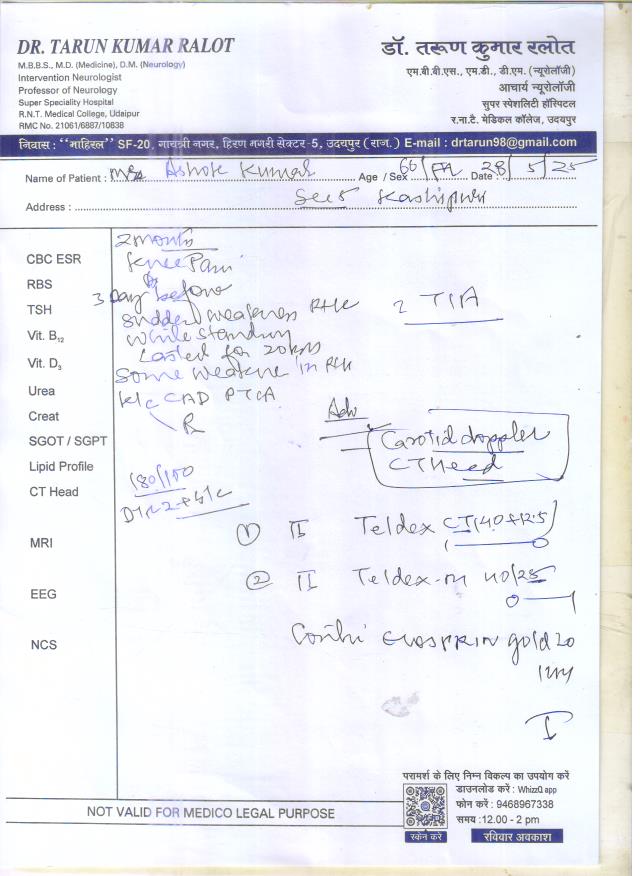 DR. TARUN KUMAR RALOT
M.B.B.S., M.D. (Medicine), D.M. (Neurology)
Intervention Neurologist
Professor of Neurology
Super Speciality Hospital
R.N.T. Medical College, Udaipur
RMC No. 21061/6887/10838
डॉ. तरूण कुमार रलोत
एम.बी.बी.एस., एम.डी., डी.एम. (न्यूरोलॉजी)
आचार्य न्यूरोलॉजी
सुपर स्पेशलिटी हॉस्पिटल
र.ना.टै. मेडिकल कॉलेज, उदयपुर
निवास : "माहिरल" SF-20, गायत्री नगर, हिरण मगरी सेक्टर-5, उदयपुर (राज.) E-mail : drtarun98@gmail.com
Name of Patient : Ashok Kumar Age / Sex 60/ Date : 28/5/25
Address :
CBC ESR
RBS
TSH
Vit. B12
Vit. D3
Urea
Creat
SGOT / SGPT
Lipid Profile
CT Head
MRI
EEG
NCS
2 months
Knee Pain
3 Day before
sudden weakness
while standing
Lasted for
some weakne in
K/c CAD PTCA
180/100
? TIA
Adv
Carotid doppler
CT Head
① Teldex CT(40+12.5)
② Teldex-m 40/25
gold 20
परामर्श के लिए निम्न विकल्प का उपयोग करें
डाउनलोड करें : WhizzQ app
फोन करें : 9468967338
समय :12.00 - 2 pm
स्कैन करें
रविवार अवकाश
NOT VALID FOR MEDICO LEGAL PURPOSE